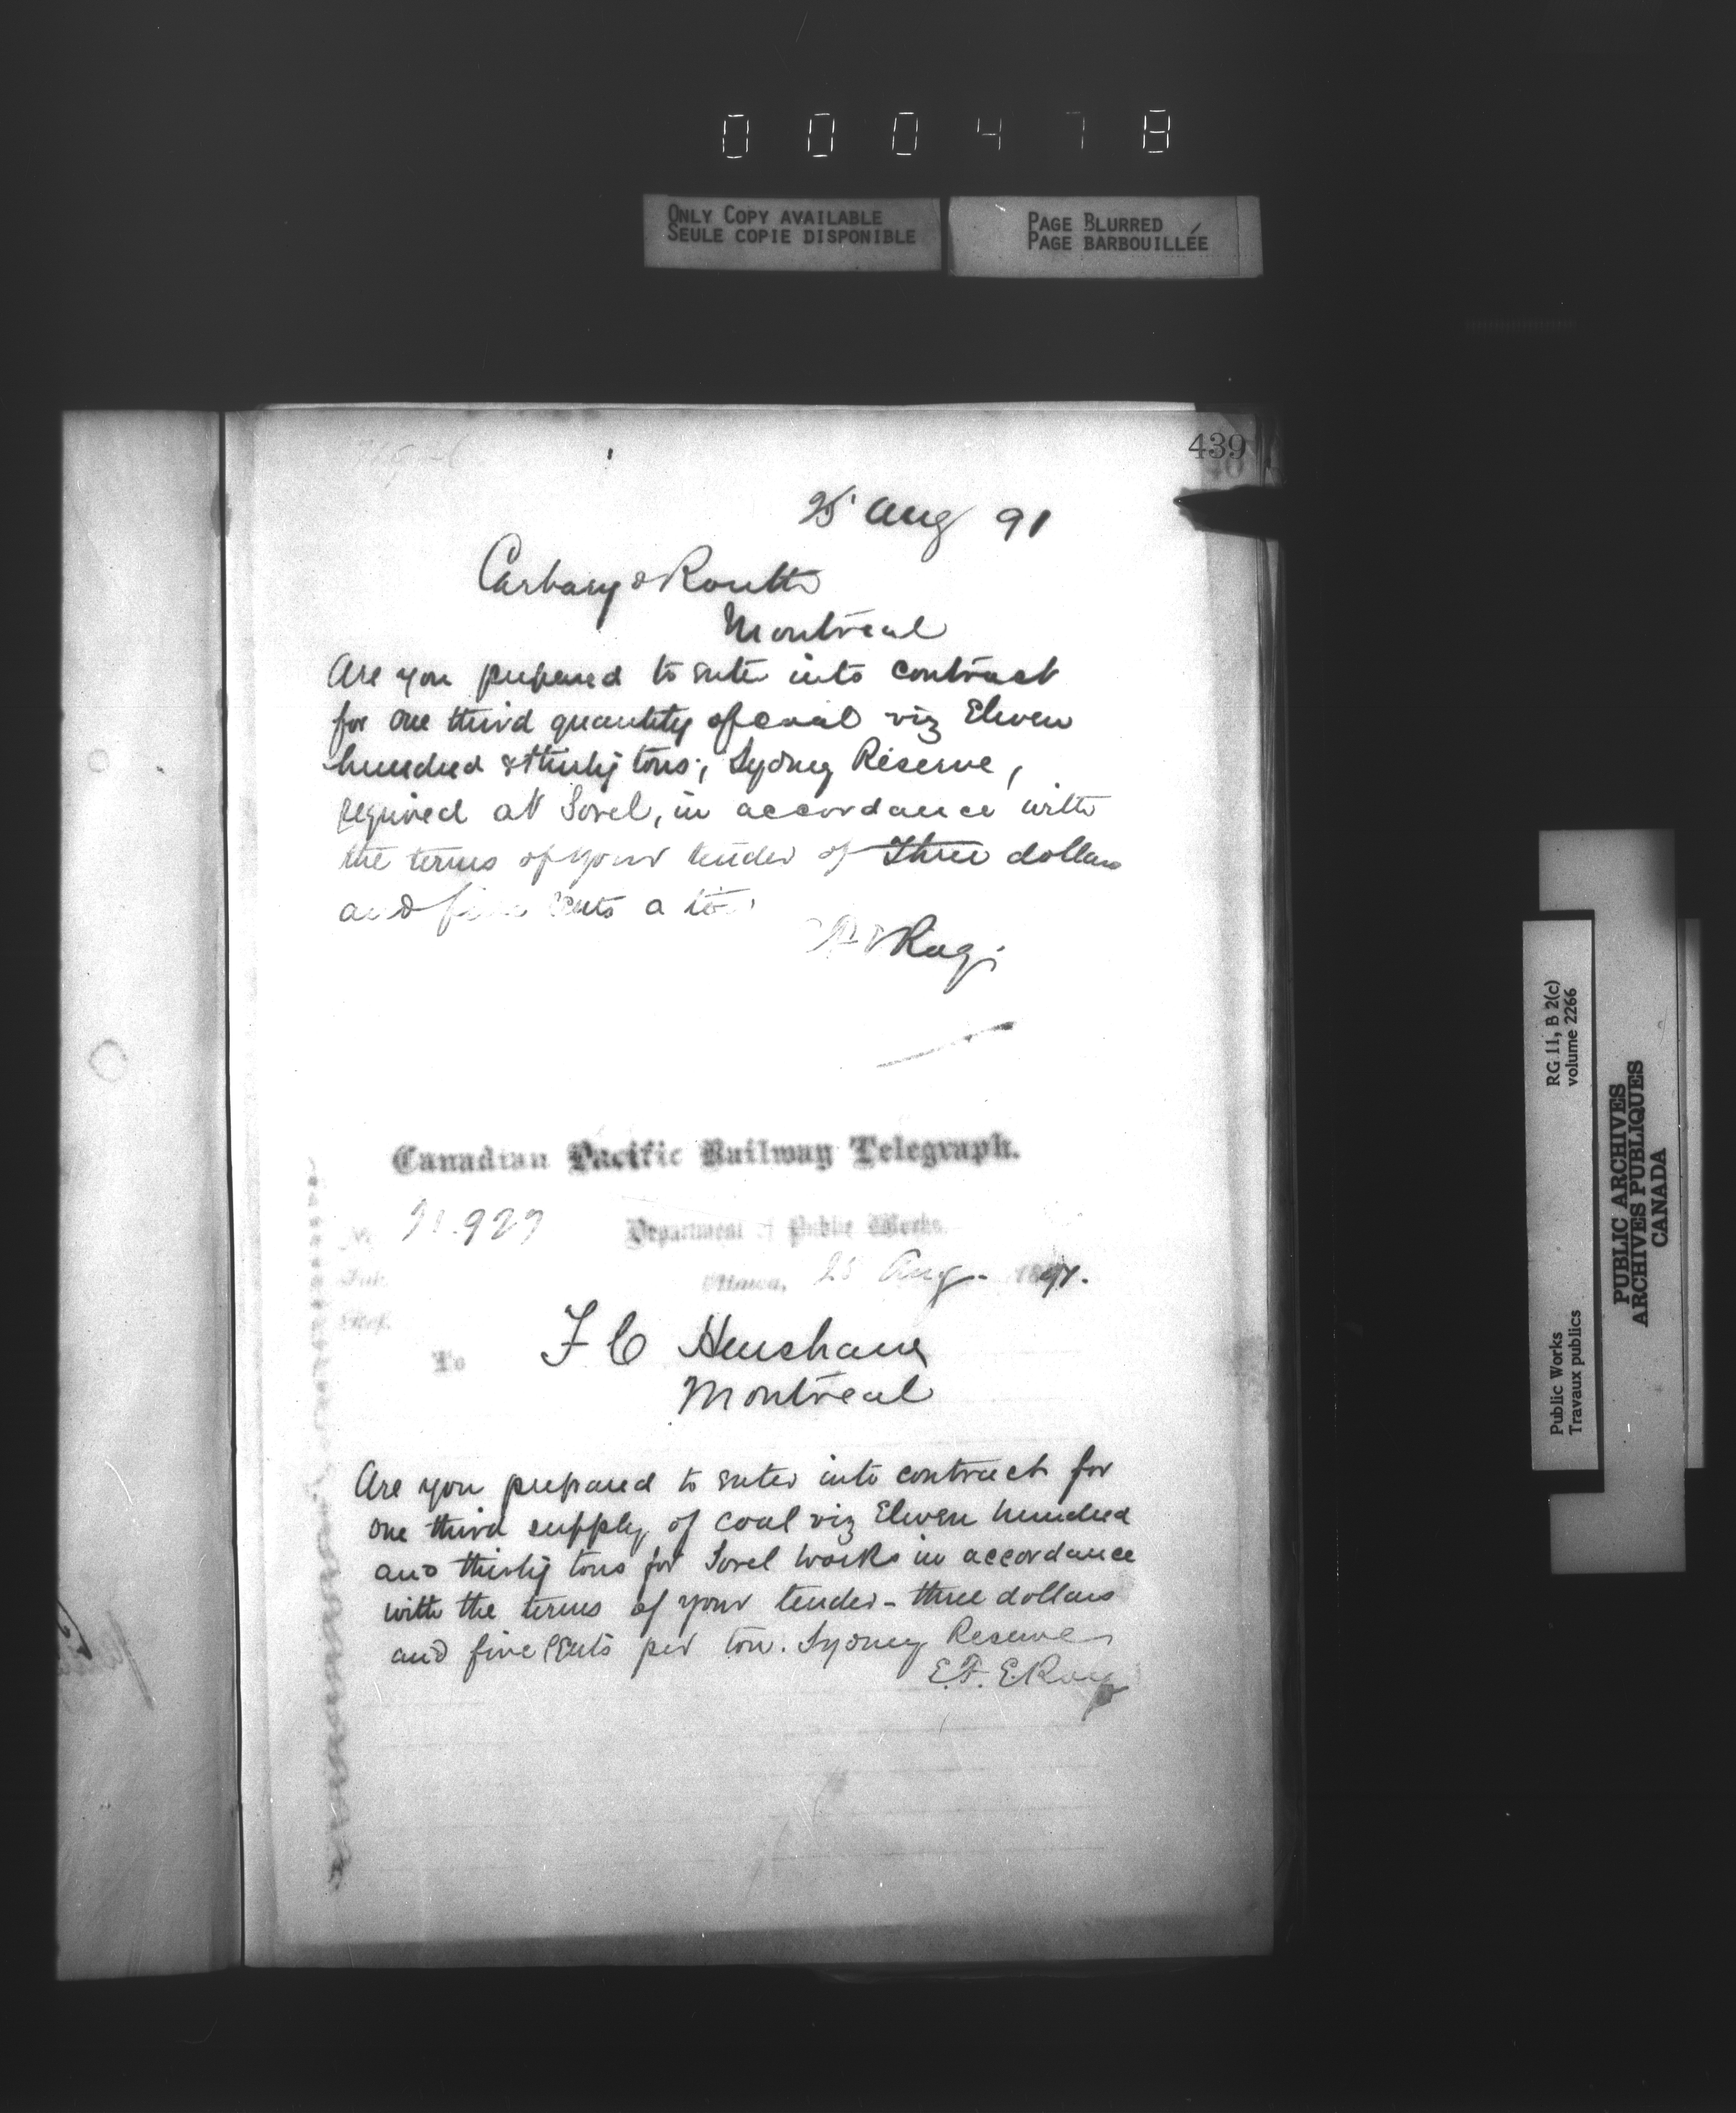 000478
ONLY COPY AVAILABLE
SEULE COPIE DISPONIBLE
PAGE BLURRED
PAGE BARBOUILLÉE
439
25 Aug 91
Carbary & Routh
Montreal
Are you prepared to enter into contract
for one third quantity of coal viz Eleven
hundred & thirty tons; Sydney Reserve,
required at Sorel, in accordance with
the terms of your tender of Three dollars
and five cents a ton
Canadian Pacific Railway Telegraph.
Department of Public Works.
Ottawa, 25 Aug. 1891.
To F C Henshaw
Montreal
Are you prepared to enter into contract for
one third supply of coal viz Eleven hundred
and thirty tons for Sorel works in accordance
with the terms of your tender - three dollars
and five cents per ton. Sydney Reserve
E.F.E. Roy
RG 11, B 2(c)
volume 2266
Public Works
Travaux publics
PUBLIC ARCHIVES
ARCHIVES PUBLIQUES
CANADA